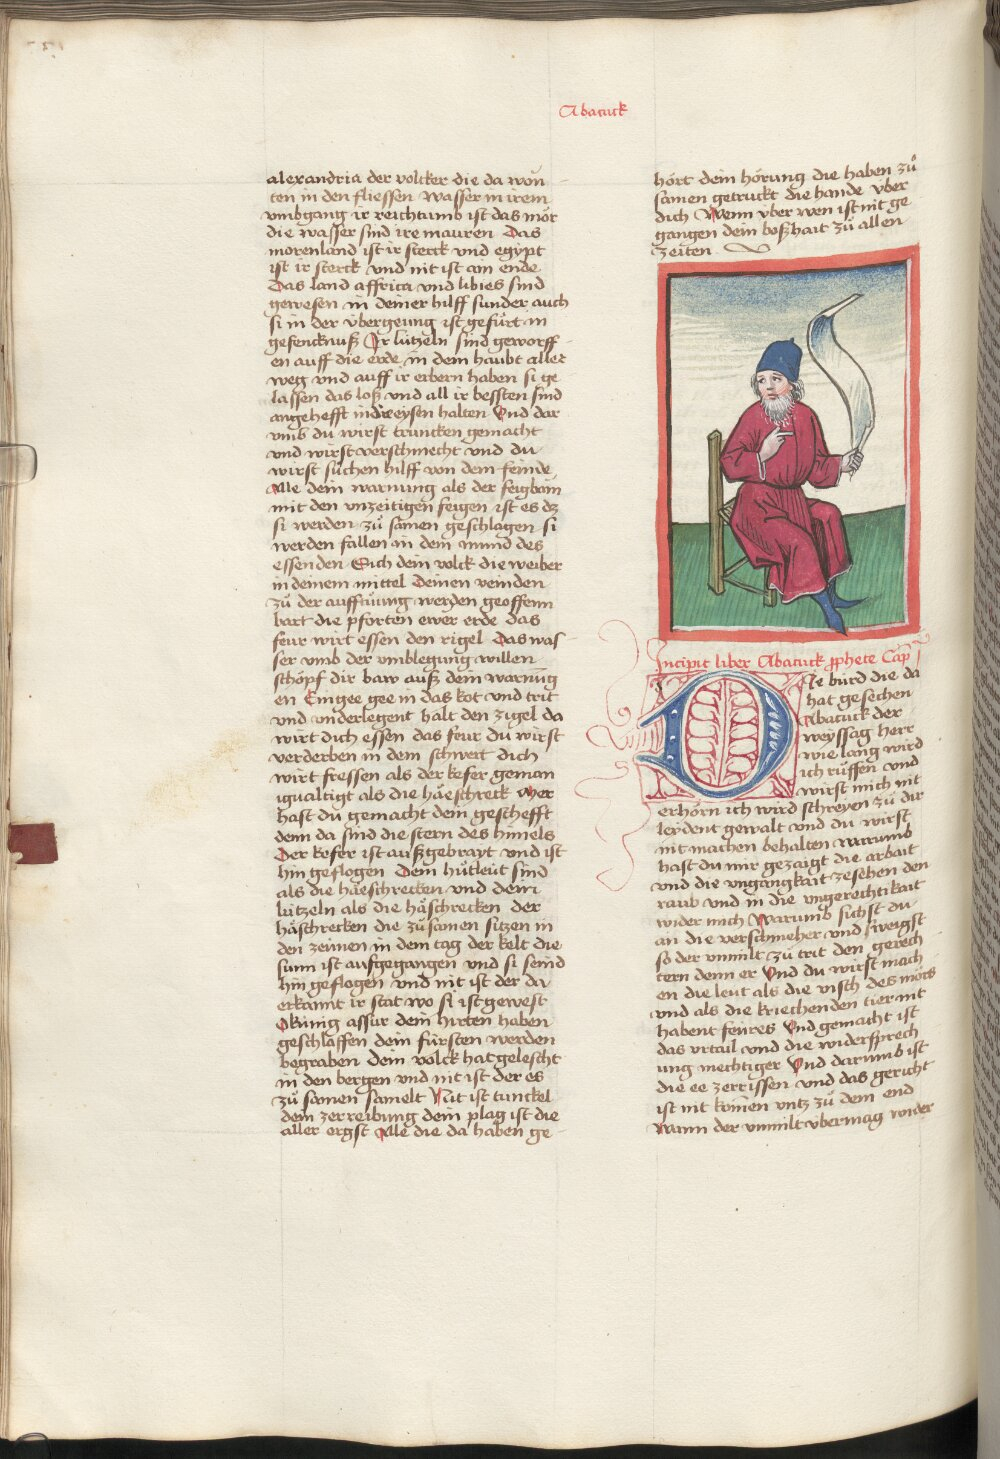 Abacuck
alexandria der volcker die da won
ten in den fliessen wasser in irem
vmbgang ir reichtumb ist das mör
die wasser sind ire mauren Das
morenland ist ir sterck vnd egypt
ist ir sterck vnd nit ist am ende
Das land affrica vnd libies sind
gewesen in deiner hilff sunder auch
si in der übergeung ist gefürt in
gefencknuß Ir lützeln sind geworff
en auff die erde in dem haubt aller
weg vnd auff ir erbern haben si ge
lassen das loß vnd all ir bessten sind
angehefft in den eysen halten Vnd dar
vmb du wirst truncken gemacht
vnd wirst verschmecht vnd du
wirst süchen hilff von dem feinde
Alle dein warnung als der feigbam
mit den vnzeitigen feigen ist es dz
si werden zů samen geschlagen si
werden fallen in dem mund des
essenden Sich dein volck die weiber
in deinem mittel Deinen veinden
zů der aufftuung werden geoffenn
bart die pforten ewer erde das
feur wirt essen den rigel Das was
ser vmb der vmblegung willen
schöpf dir baw auß dein warnūg
en Eingee gee in das kot vnd trit
vnd vnderlegent halt den zigel da
wirt dich essen das feur du wirst
verderben in dem schwert dich
wirt fressen als der kefer geman
igualtigt als die häeschreck Mer
hast du gemacht dein geschefft
denn da sind die stern des himels
Der kefer ist außgebrayt vnd ist
hin geflogen Dein hutleüt sind
als die häeschrecken vnd dein
lützeln als die häschrecken der
häschrecken die zůsamen sitzen in
den zeünen in dem tag der kelt die
sunn ist aufgegangen vnd si seind
hin geflogen vnd nit ist der da
erkannt ir stat wo si ist gewest
O künig assur dein hirten haben
geschlaffen dein fürsten werden
begraben Dein volck hat gelescht
in den bergen vnd nit ist der es
zů samen samelt Nit ist tunckel
dein zerreibung dein plag ist die
aller ergst Alle die da haben ge
hört dein hörung die haben zů
samen getruckt die hande vber
dich Wenn vber wen ist nit ge
gangen dein boßhait zů allen
zeiten
Incipit liber Abacuck pphete Cap I
Die bürd die da
hat gesechen
Abacuck der
weyssag herr
wie lang wird
ich rüffen vnd
wirst mich nit
erhörn ich wird schreyen zů dir
leydent gewalt vnd du wirst
nit machen behalten warumb
hast du mir gezaigt die arbait
vnd die vngangkait zesehen den
raub vnd in die vngerechtikait
wider mich Warumb sichst du
an die verschmeher vnd sweigst
so der vnmilt zů trit den gerech
tern denn er Vnd du wirst mach
en die leut als die visch des mörs
vnd als die kriechenden tier nit
habent feüres Vnd gemacht ist
das vrtail vnd die widersprech
ung mechtiger Vnd darumb ist
die ee zerrissen vnd das gericht
ist nit komen vntz zů dem end
Wann der vnmilt vbermag wider